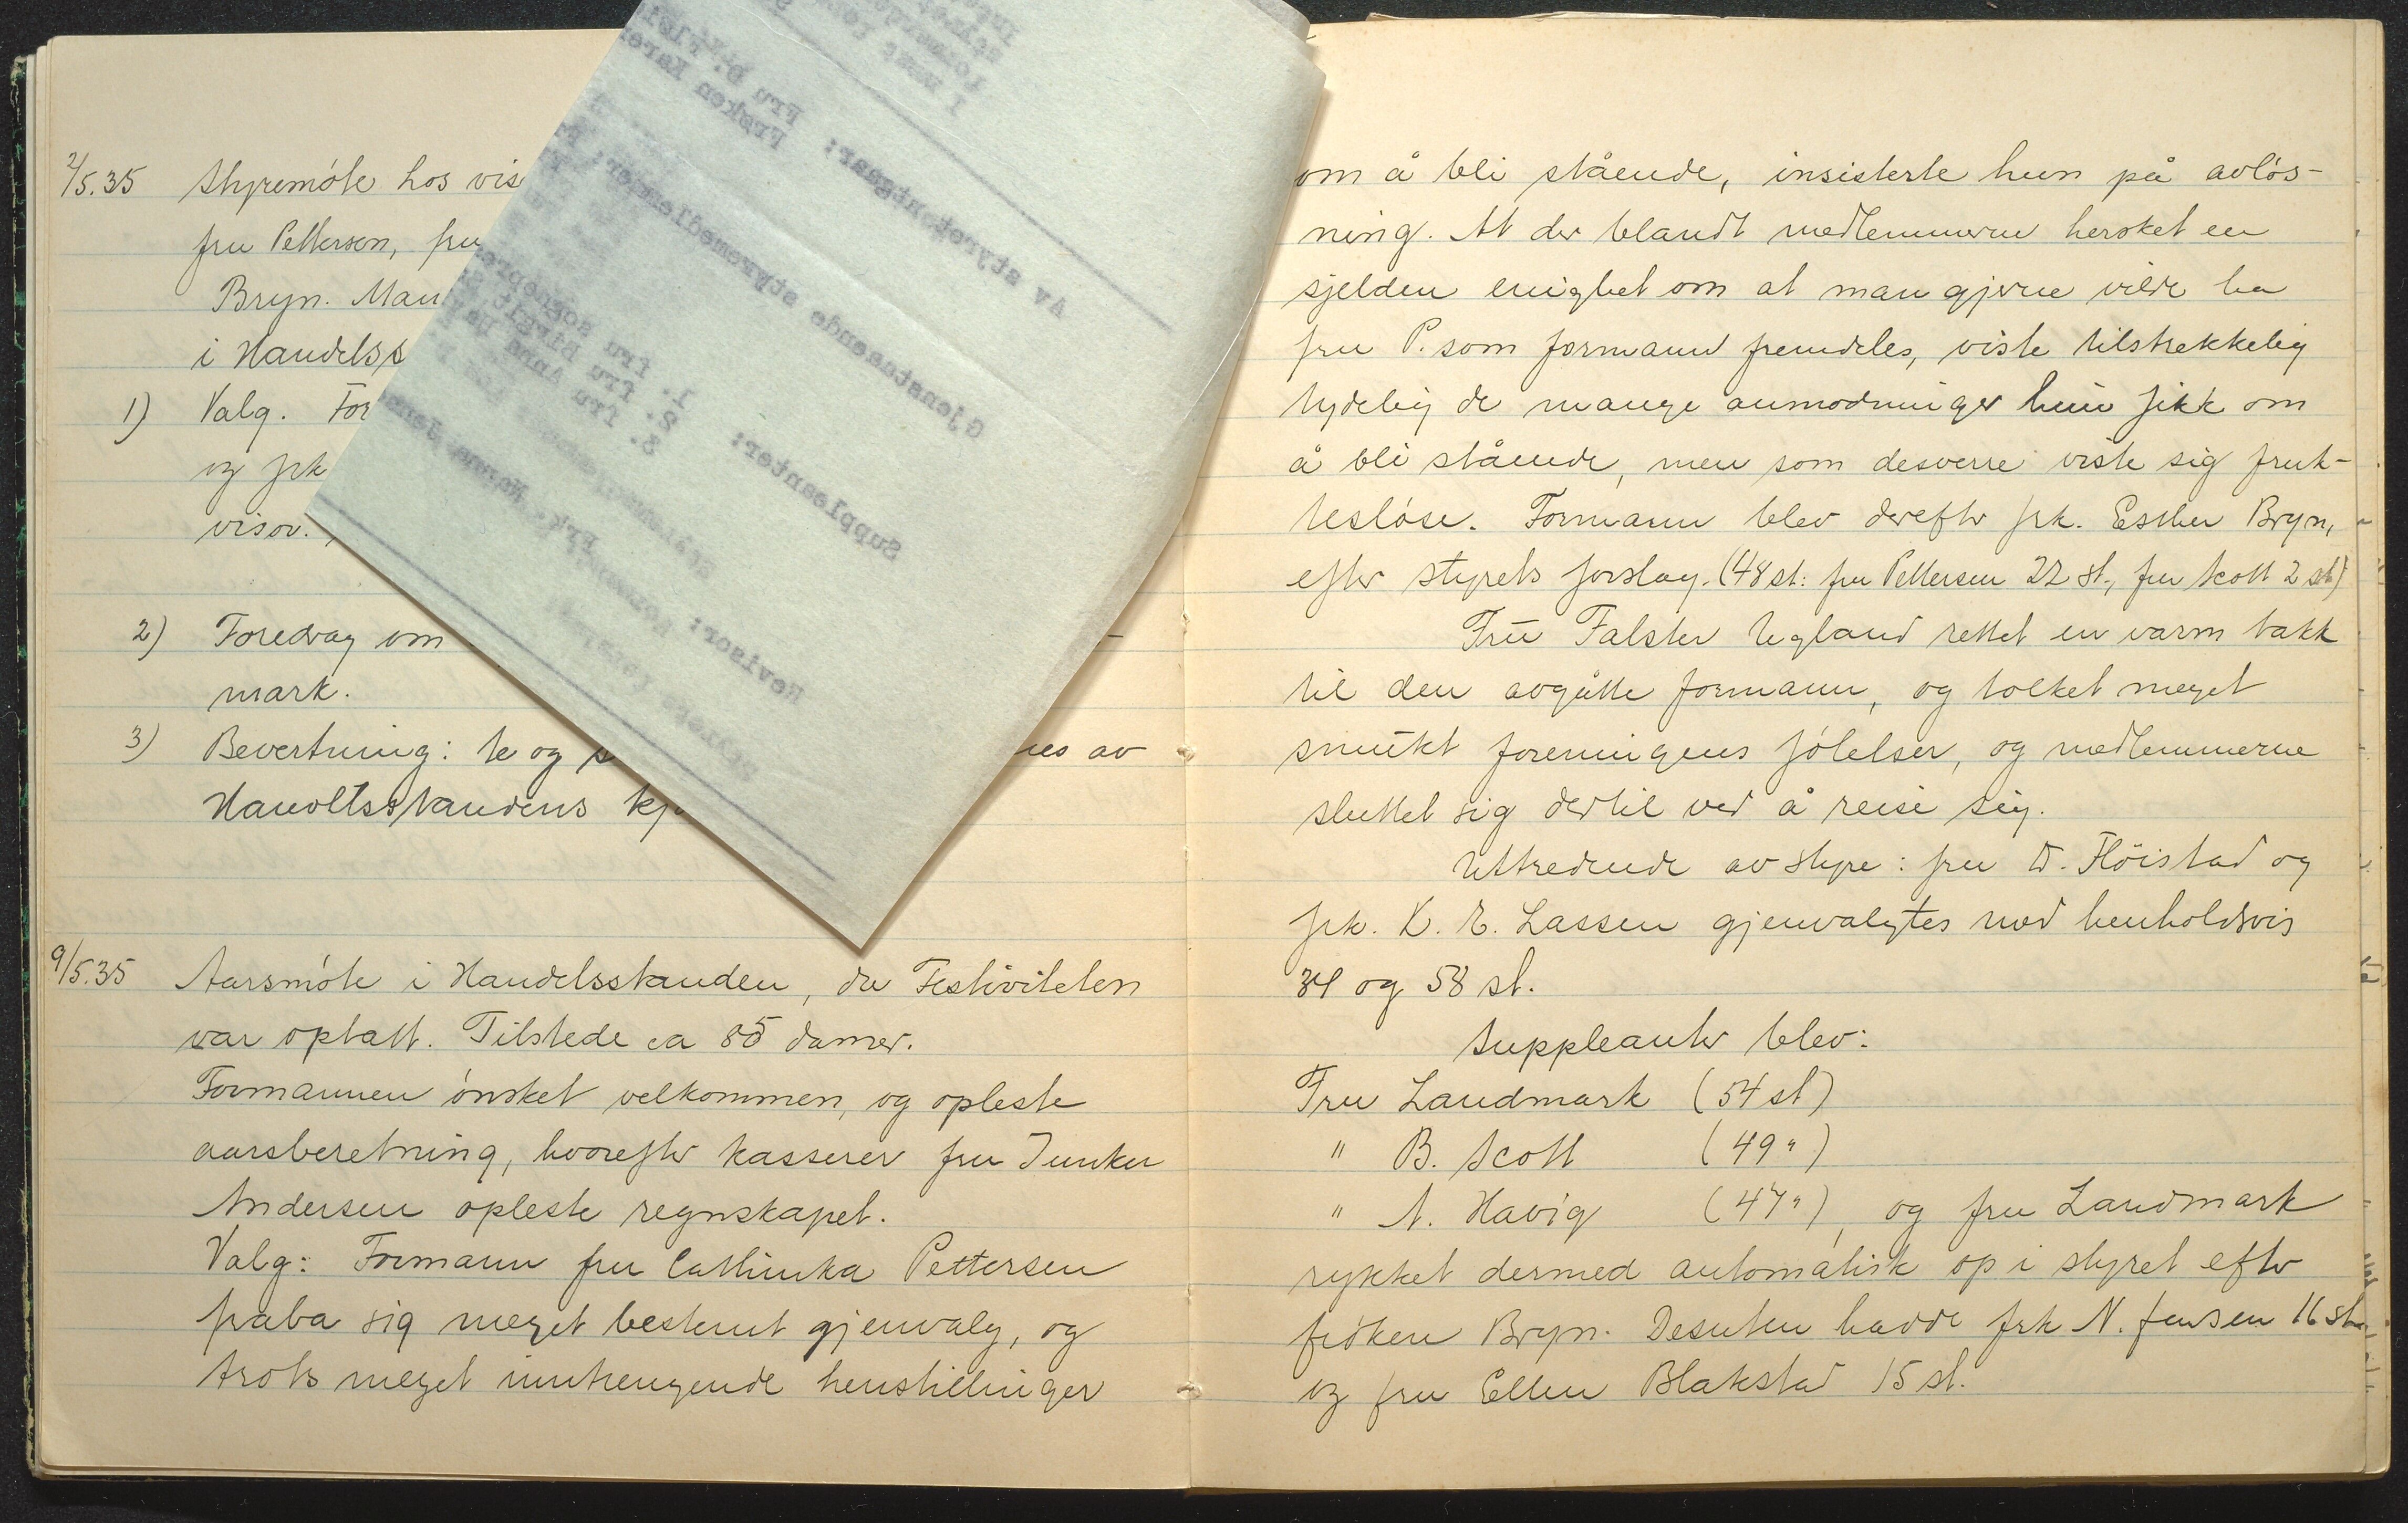 2/5.35 Styremöte hos vis
fru Pettersen, fru
Bryn. Man
i Handelss
1) Valg. For
og frk
visor.
2) Foredrag om
mark.
3) Bevertning: te og s
nes av
Handelsstandens kj
9/5.35 Aarsmöte i Handelsstanden, da Festiviteten
var optatt. Tilstede ca 85 damer.
Formannen önsket velkommen, og opleste
aarsberetning, hvorefter kasserer fru Junker
Andersen opleste regnskapet.
Valg: Formann fru Cathinka Pettersen
fraba sig meget bestemt gjenvalg, og
trots meget inntrengende henstillinger
Av styret utgaar:
Fru D.
Frøken Karen
Gjenstaaende styremedlemmer:
Suppleanter:
1. fru
2. fru Birgit
3. fru Anna
Revisor: Frk. Nanna Jens
om å bli stående, insisterte hun på avlös-
ning. At der blandt medlemmerne hersket en
sjelden enighet om at man gjerne vilde ha
fru P. som formann fremdeles, viste tilstrekkelig
tydelig de mange anmodninger hun fikk om
å bli stående, men som desverre viste sig frukt-
tesløse. Formann blev derefter frk. Esther Bryn,
efter styrets forslag. (48 st: fru Pettersen 22 st., fru Scott 2 st)
Fru Falster Ugland rettet en varm takk
til den avgåtte formann, og tolket meget
smukt foreningens fölelser, og medlemmerne
sluttet sig dertil ved å reise sig.
Uttredende av styre: fru D. Flöistad og
frk. K. E. Lassen gjenvalgtes med henholdsvis
34 og 58 st.
Suppleanter blev:
Fru Landmark (54 st)
" B. Scott (49 ")
" A. Havig (47 "), og fru Landmark
rykket dermed automatisk op i styret efter
fröken Bryn. Desuten hadde frk N. Jensen 16 st
og fru Ellen Blakstad 15 st.